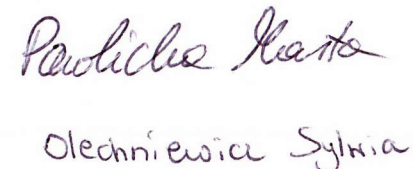 Pawlicka Marta
Olechniewicz Sylwia